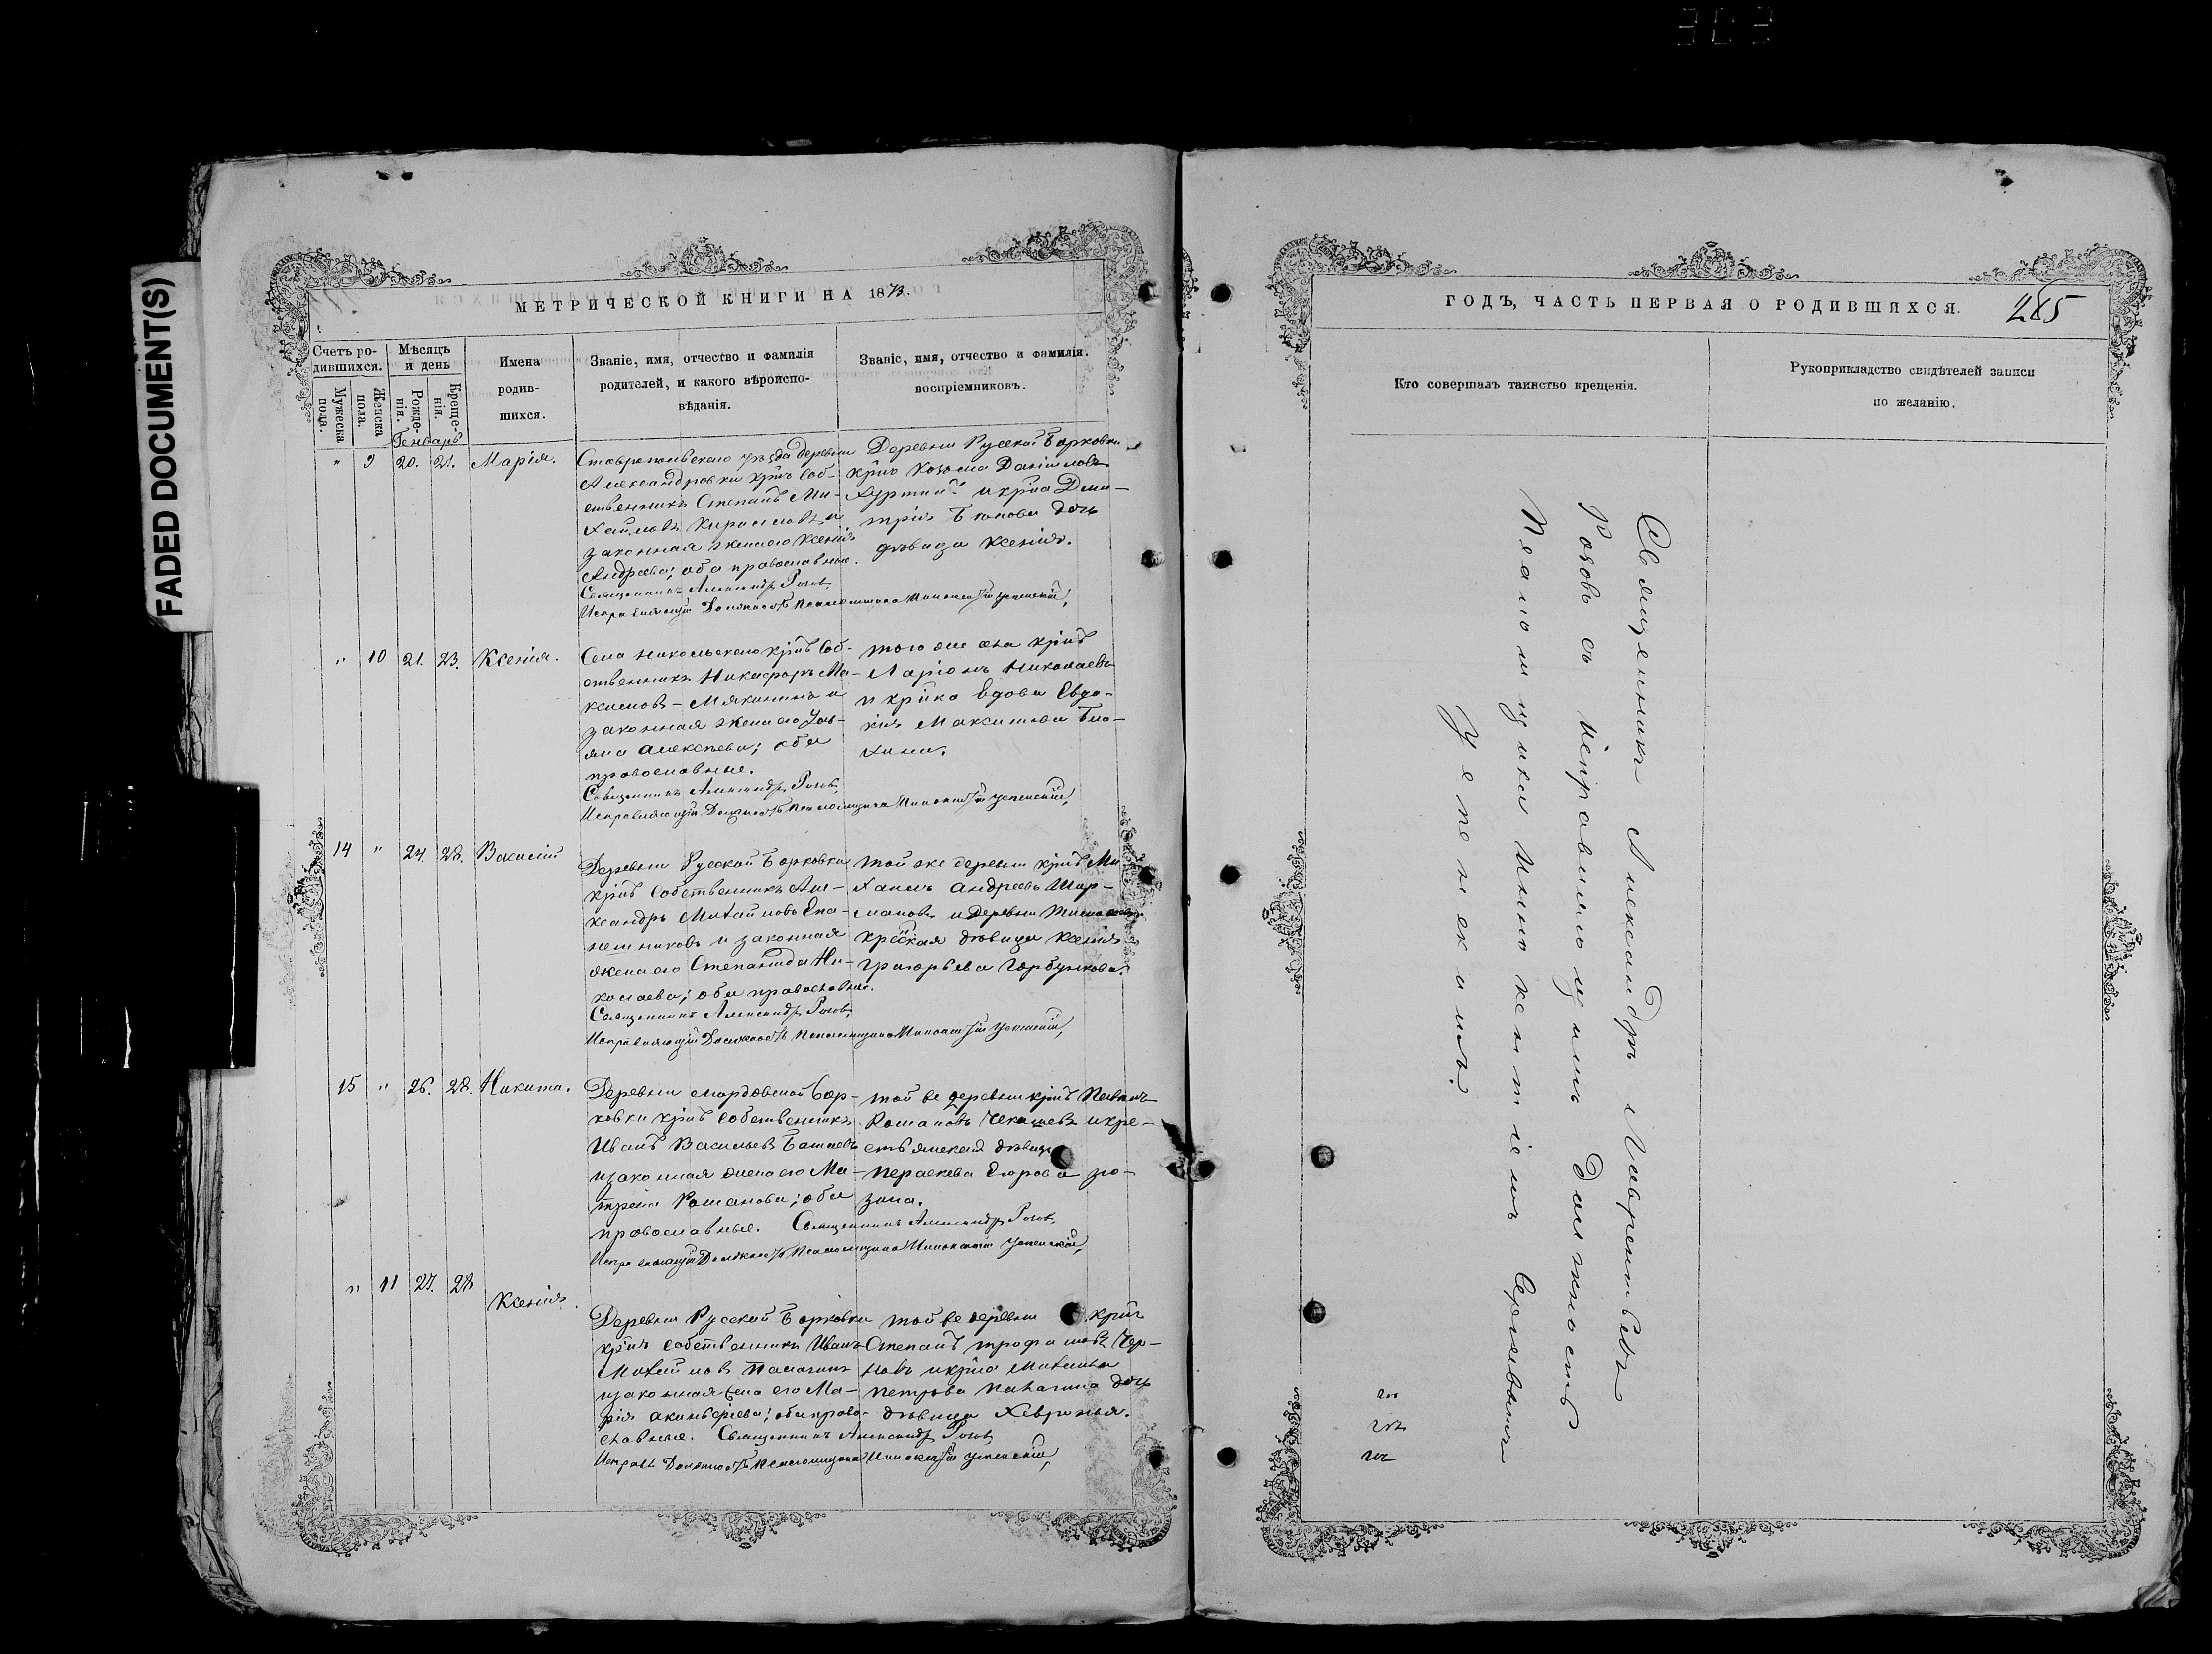 FADED DOCUMENT(S)
МЕТРИЧЕСКОЙ КНИГИ НА 1873.
Счетъ ро-
дившихся.
Мужеска
пола.
Женска
пола.
Мѣсяцъ
и день
Рожде-
нія.
Креще-
нія.
Имена
родив-
шихся.
Званіе, имя, отчество и фамилія
родителей, и какого вѣроиспо-
вѣданія.
Званіе, имя, отчество и фамилія.
воспріемниковъ.
Генварь
" 9 20. 21. Марія.
Ставропольскаго уѣзда деревни
Александровки крнъ Соб-
ственникъ Степанъ Ми-
хайловъ и
законная жена его Ксенія
Андреева; оба православные.
Священникъ Александръ Розовъ
Исправляющій Должность Псаломщика Иннокентій Успенскій,
Деревни Русской Борковки
крнъ Козьма Даніиловъ
и крна Дми-
трія дочь
дѣвица Ксенія.
" 10 21. 23. Ксенія.
Села Никольскаго крнъ Соб-
ственникъ Никифоръ Ма-
ксимовъ - Мякининъ и
законная жена его Уль-
яна Алексѣева; оба
православные.
Священникъ Александръ Розовъ,
Исправляющій Должность Псаломщика Иннокентій Успенскій,
того же села крнъ
Ларіонъ Николаевъ
и крнка вдова Евдо-
кія Максимова
14 " 24. 28. Василій
Деревни Русской Борковки
крнъ Собственникъ Але-
ксандръ Михайловъ
и законная
жена его Степанида Ни-
колаева; оба православные.
Священникъ Александръ Розовъ,
Исправляющій Должность Псаломщика Иннокентій Успенскій,
той же деревни крнъ Ми-
хаилъ Андреевъ Шар-
мановъ и деревни
крсская дѣвица Ксенія
Григорьева Горбункова.
15 " 26. 28. Никита.
Деревни Мордовской Бор-
ковки крнъ собственникъ
Иванъ Васильевъ
и законная жена его Ма-
трена Романова; оба
православные. Священникъ Александръ Розовъ,
Исправляющій Должность Псаломщика Иннокентій Успенскій,
той же деревни крнъ
Романовъ и кре-
стьянская дѣвица
Параскева Егорова
" 11 27. 28 Ксенія.
Деревни Русской Борковки
крнъ собственникъ Иванъ
Михайловъ
и законная жена его Ма-
рія; оба право-
славные. Священникъ Александръ Розовъ
Исправ. Должность Псаломщика Иннокентій Успенскій,
той же деревни крнъ
Степанъ Трофимовъ Чер-
новъ и крна Михаила
Петрова дочь
дѣвица Хавронья.
ГОДЪ, ЧАСТЬ ПЕРВАЯ О РОДИВШИХСЯ.
285
Кто совершалъ таинство крещенія.
Рукоприкладство свидѣтелей записи
по желанію.
Священникъ Александръ Лаврентьевъ
Розовъ съ исправляющимъ должность
Псаломщика Иннокентіемъ Сергѣевымъ
Успенскимъ.